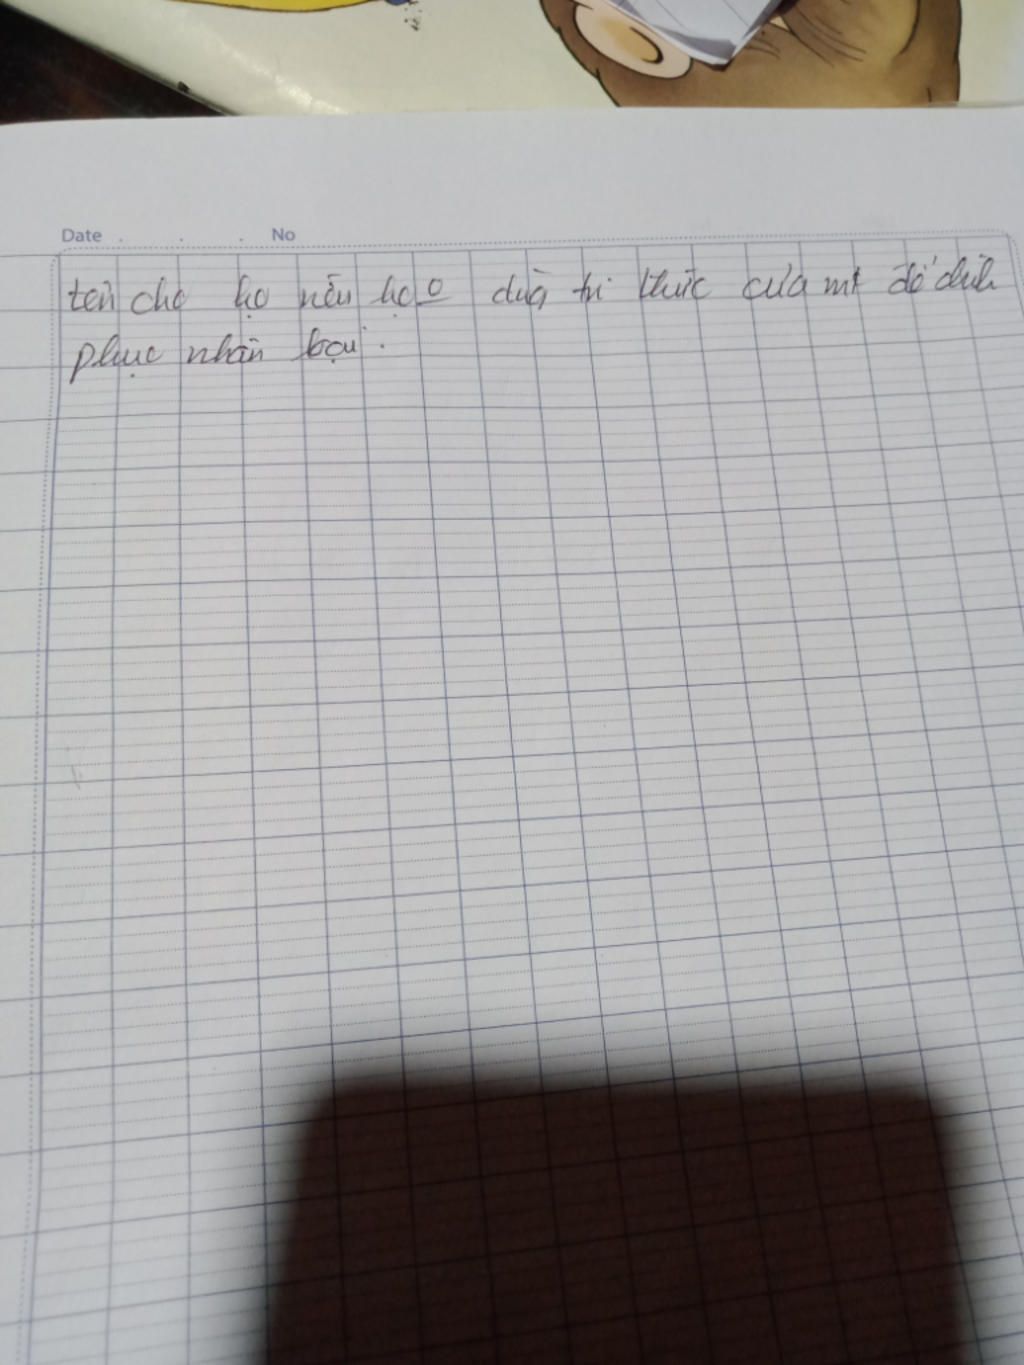 Date . . . No
tên cho họ nếu họ o dùg tri thức của mt để chih
phục nhân loại.